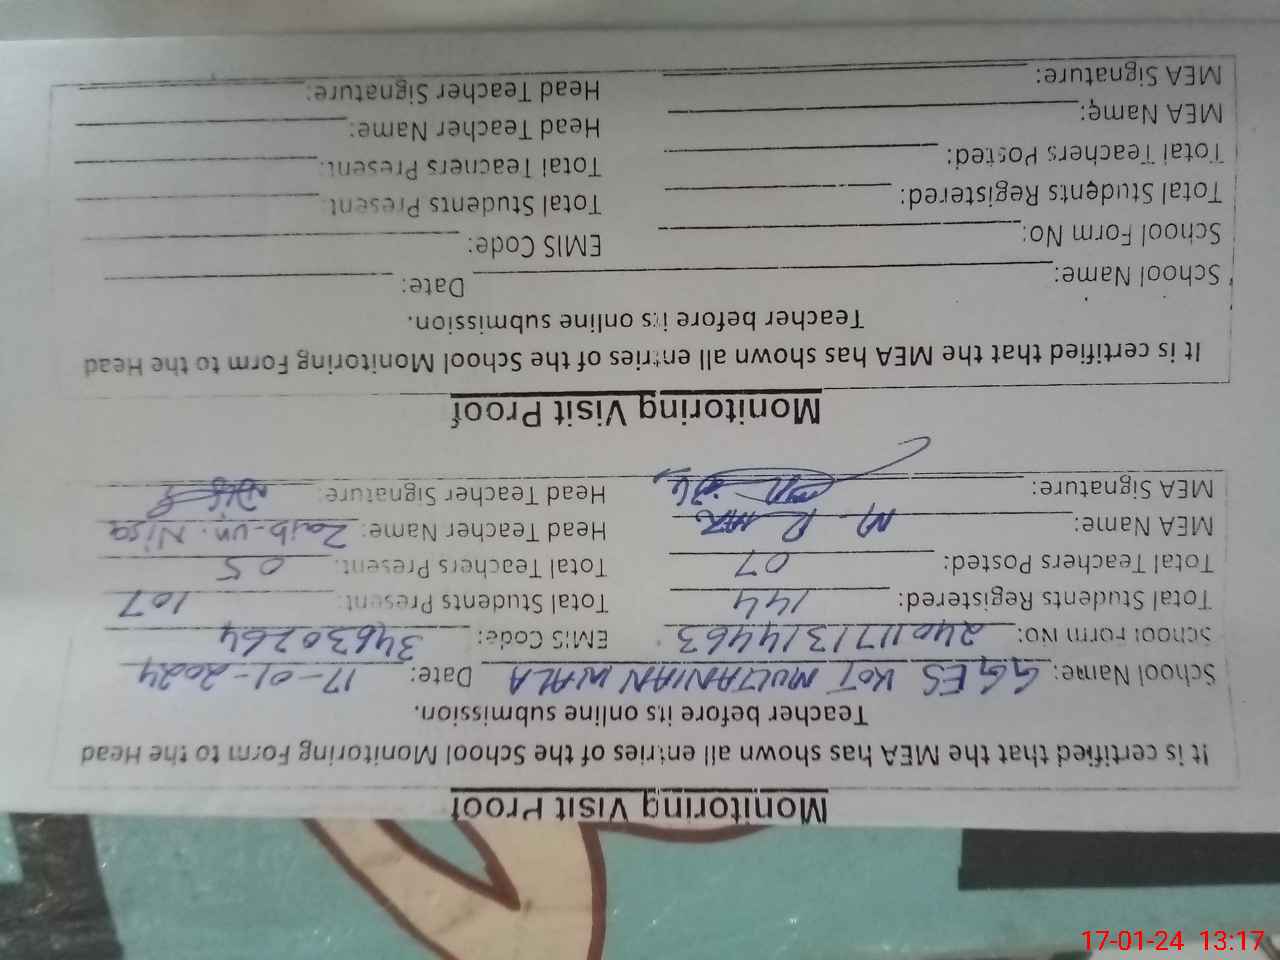 Monitoring Visit Proof
It is certified that the MEA has shown all entries of the School Monitoring Form to the Head
Teacher before its online submission.
School Name: GGES KOT MULTANIAN WALA Date: 17-01-2024
School Form No: 2401171314463 EMIS Code: 34630264
Total Students Registered: 144 Total Students Present: 107
Total Teachers Posted: 07 Total Teachers Present: 05
MEA Name: M. Head Teacher Name: Zaib-un-Nisa
MEA Signature: Head Teacher Signature:
Monitoring Visit Proof
It is certified that the MEA has shown all entries of the School Monitoring Form to the Head
Teacher before its online submission.
School Name: Date:
School Form No: EMIS Code:
Total Students Registered: Total Students Present:
Total Teachers Posted: Total Teachers Present:
MEA Name: Head Teacher Name:
MEA Signature: Head Teacher Signature:
17-01-24 13:17